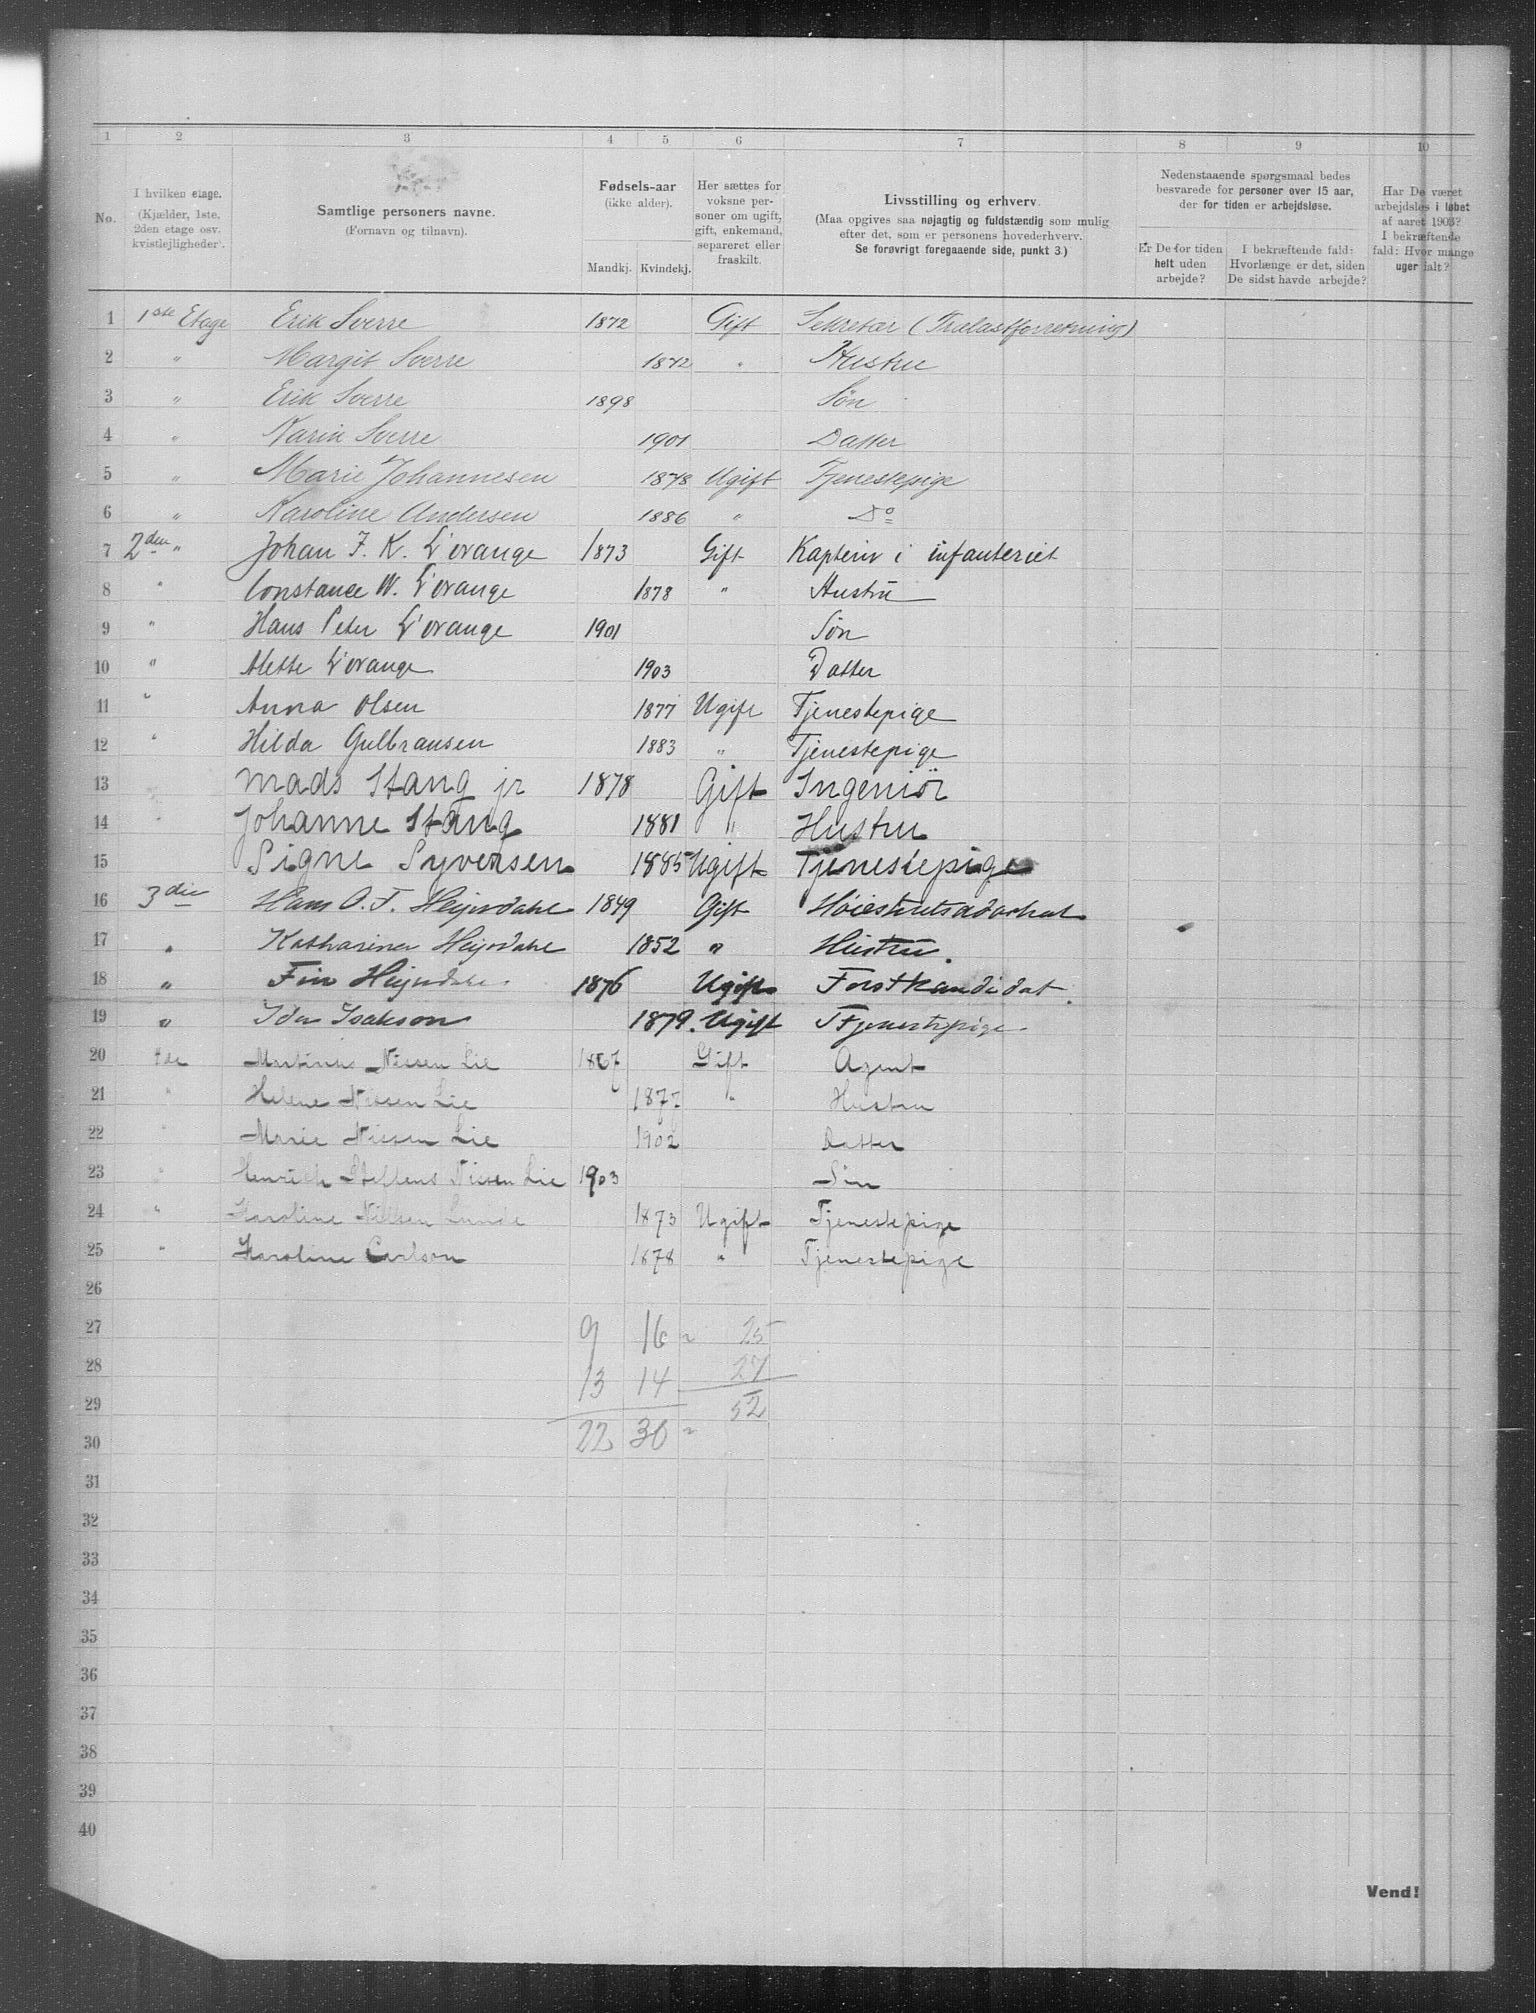 1 2 3 4 5 6 7 8 9 10
No.
I hvilken etage.
(Kjælder, 1ste.
2den etage osv.
kvistlejligheder).
Samtlige personers navne.
(Fornavn og tilnavn).
Fødsels-aar
(ikke alder).
Mandkj. Kvindekj.
Her sættes for
voksne per-
soner om ugift,
gift, enkemand,
separeret eller
fraskilt.
Livsstilling og erhverv.
(Maa opgives saa nøjagtig og fuldstændig som mulig
efter det, som er personens hovederhverv.
Se forøvrigt foregaaende side, punkt 3.)
Nedenstaaende spørgsmaal bedes
besvarede for personer over 15 aar,
der for tiden er arbejdsløse.
Er De for tiden
helt uden
arbejde?
I bekræftende fald:
Hvorlænge er det, siden
De sidst havde arbejde?
Har De været
arbejdsløs i løbet
af aaret 1903?
I bekræftende
fald: Hvor mange
uger ialt?
1 1ste Etage Erik Sverre 1872 Gift Sekretær (Trælastforretning)
2 " Margit Sverre 1872 " Hustru
3 " Erik Sverre 1898 Søn
4 " Karin Sverre 1901 Datter
5 " Marie Johannesen 1878 Ugift Tjenestepige
6 " Karoline Andersen 1886 " Do
7 2den " Johan F. K. L'orange 1873 Gift Kaptein i infanteriet
8 " Constance W. L'orange 1878 " Hustru
9 " Hans Peter L'orange 1901 Søn
10 " Mette L'orange 1903 Datter
11 " Anna Olsen 1877 Ugift Tjenestepige
12 " Hilda Gulbransen 1883 " Tjenestepige
13 Mads Stang jr 1878 Gift Ingeniör
14 " Johanne Stang 1881 " Hustru
15 Signe Syversen 1885 Ugift Tjenestepige
16 3die Hans O. F. 1849 Gift Høiesteretsadvokat
17 " Katharina 1852 " Hustru.
18 " Fin 1876 Ugift Forstkandidat.
19 " Ida Isakson 1879. Ugift Tjenestepige
20 4de Martinus Nissen Lie 1867 Gift Agent
21 " Helene Nissen Lie 1877 " Hustru
22 " Marie Nissen Lie 1902 Datter
23 " Henrich Steffens Nissen Lie 1903 Søn
24 " Karoline Nilsen Lunde 1873 Ugift Tjenestepige
25 " Karoline Carlson 1878 " Tjenestepige
26
27 9 16 = 25
28 13 14 27
29 52
30 22 30 =
31
32
33
34
35
36
37
38
39
40
Vend!